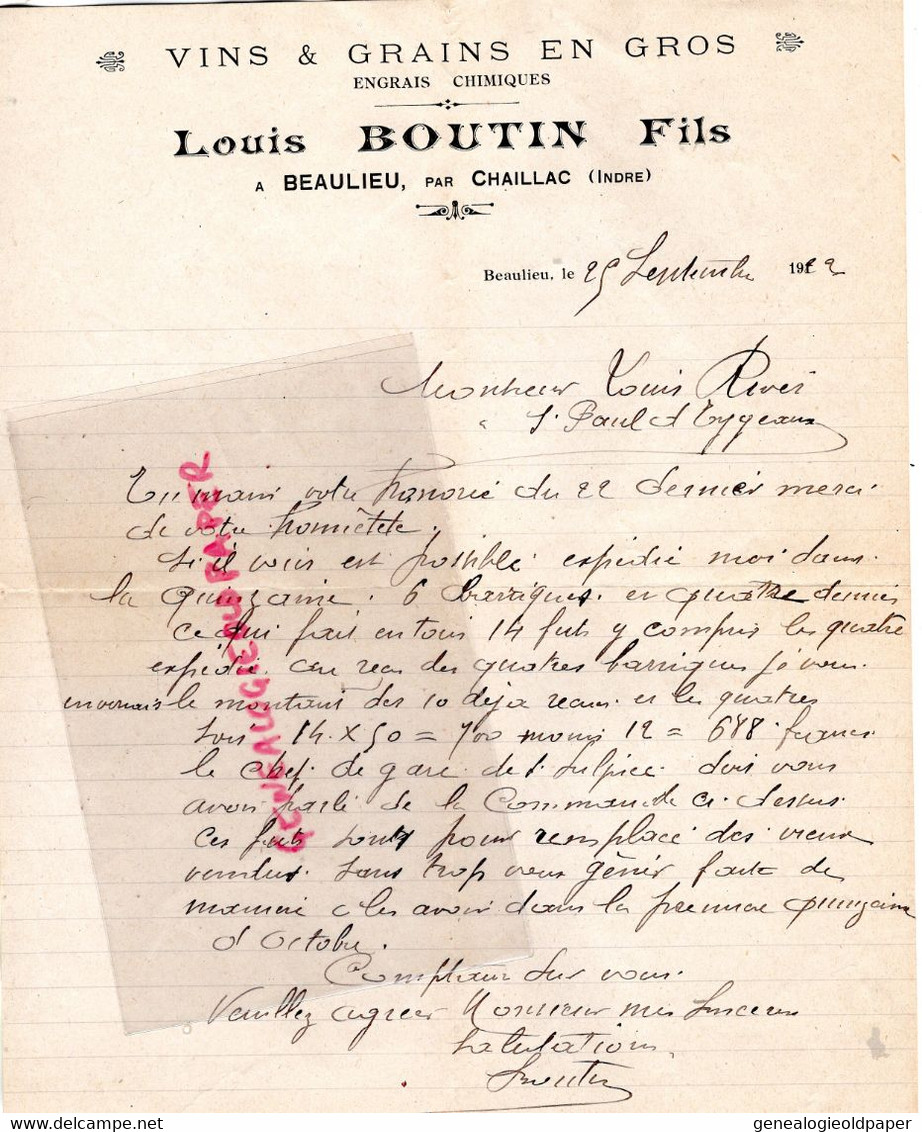 VINS & GRAINS EN GROS
ENGRAIS CHIMIQUES
Louis BOUTIN Fils
A BEAULIEU, PAR CHAILLAC (INDRE)
Beaulieu, le 25 Septembre 1922
Monsieur Louis
à St Paul d'Eyjeaux
En mains votre honorée du 22 dernier merci
de votre honnêteté.
Si il vous est possible expédié moi dans
la Quinzaine. 6 barriques. et quatre demies
ce qui fait en tous 14 futs y compris les quatre
expédié au recu des quatres barriques je vous
enverrais le montant des 10 déja recus et les quatres
soit 14 x 50 = 700 moins 12 = 688 francs
le chef de gare de St Sulpice dois vous
avoir parlé de la Commande ci-dessus.
Ces futs sont pour remplacé des vieux
vendus. Sans trop vous gènér faite de
manière a les avoir dans la première quinzaine
d'Octobre.
Comptant sur vous.
Veuillez agréer Monsieur mes sincères
salutations.
Boutin
GENEALOGIE OLD PAPER
genealogieoldpaper